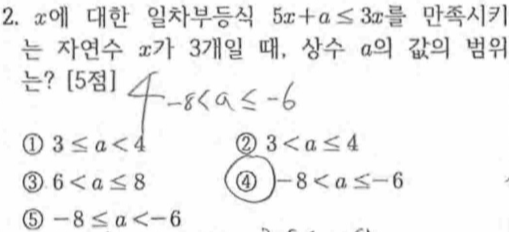 2. x에 대한 일차부등식 5x+a≤3x를 만족시키
는 자연수 x가 3개일 때, 상수 a의 값의 범위
는? [5점]
4 -8<a≤-6
① 3≤a<4 ② 3<a≤4
③ 6<a≤8 ④ -8<a≤-6
⑤ -8≤a<-6